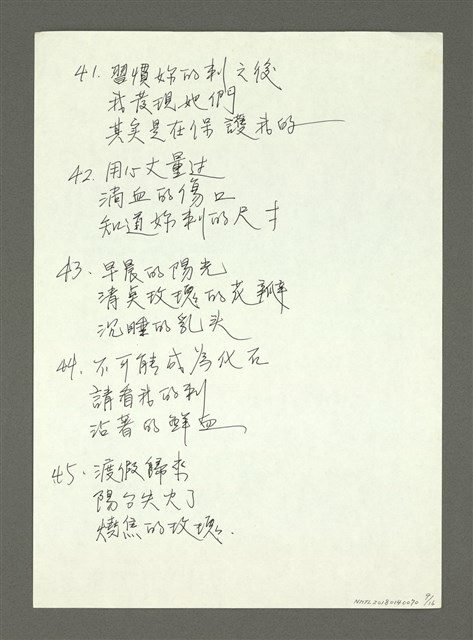 41. 習慣妳的刺之後
我發現她們
其实是在保護我的——
42. 用心丈量过
淌血的傷口
知道妳刺的尺寸
43. 早晨的陽光
清臭玫瑰的花瓣
沉睡的乳头
44. 不可能成為化石
請看我的刺
沾著的鮮血
45. 渡假歸來
陽台失火了
燒焦的玫瑰.
NMTL20180140090 9/16